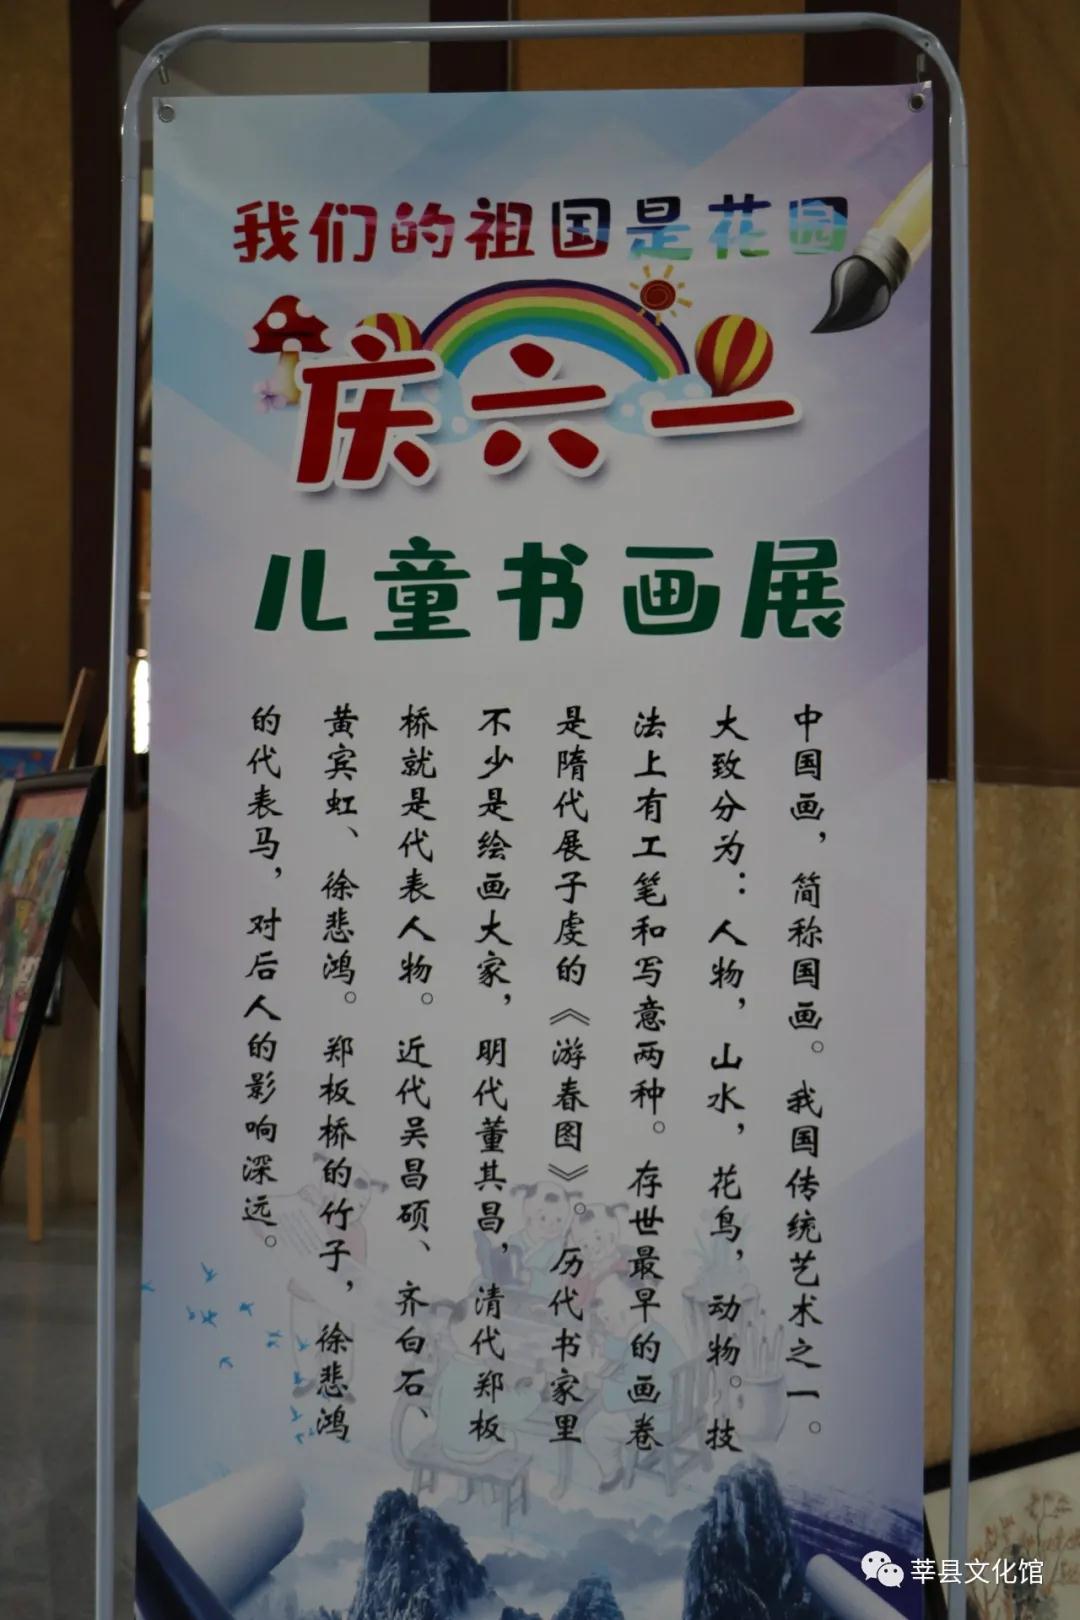 我们的祖国是花园
庆六一
儿童书画展
中国画，简称国画。我国传统艺术之一。
大致分为：人物，山水，花鸟，动物。技
法上有工笔和写意两种。存世最早的画卷
是隋代展子虔的《游春图》。历代书家里
不少是绘画大家，明代董其昌，清代郑板
桥就是代表人物。近代吴昌硕、齐白石、
黄宾虹、徐悲鸿。郑板桥的竹子，徐悲鸿
的代表马，对后人的影响深远。
莘县文化馆